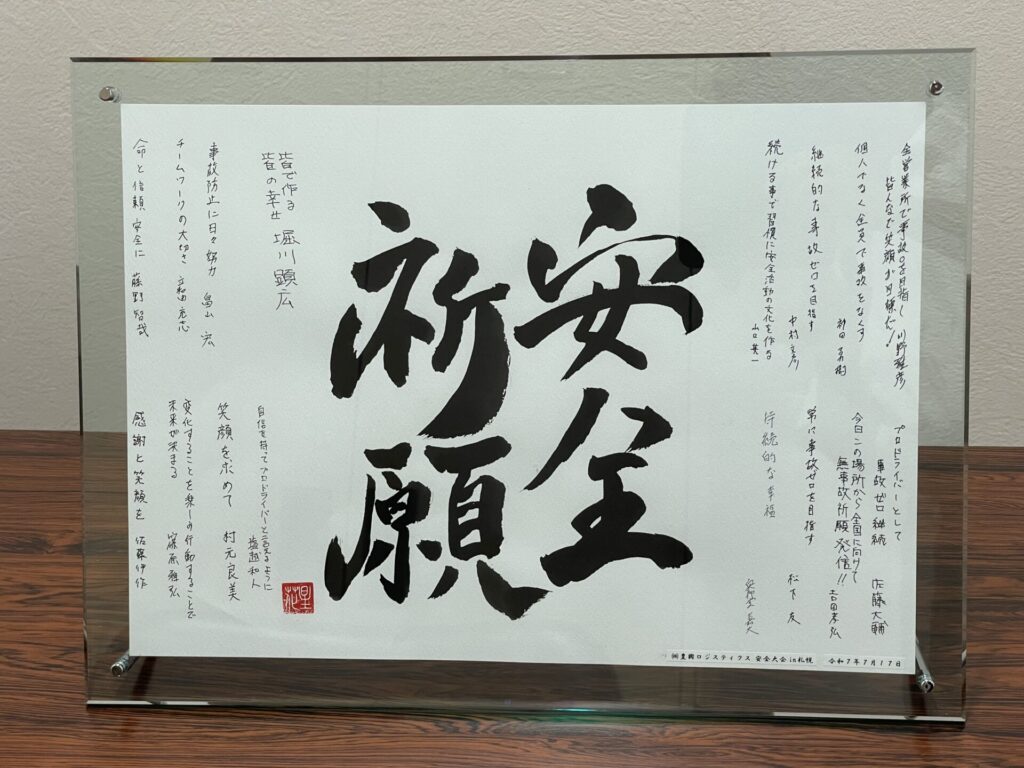 安全
祈願
全営業所で事故0を目指し
皆んなで笑顔が目標だ！ 川野雅彦
個人でなく全員で事故をなくす
継続的な事故ゼロを目指す
続ける事で習慣に安全活動の文化を作る
山口英一
プロドライバーとして
事故ゼロ継続 佐藤大輔
今日この場所から全国に向けて
無事故祈願発信!! 吉田孝弘
常に事故ゼロを目指す 松下友
持続的な幸福
皆で作る
皆の幸せ 堀川顕広
事故防止に日々努力 畠山宏
チームワークの大切さ
命と信頼 安全に 藤野智哉
自信を持てプロドライバーと言えるように
塩越和人
笑顔を求めて 村元良美
変化することを楽しみ行動することで
未来が決まる 篠原雅弘
感謝と笑顔を 佐藤伊作
㈱豊興ロジスティクス 安全大会 in札幌 令和7年7月17日